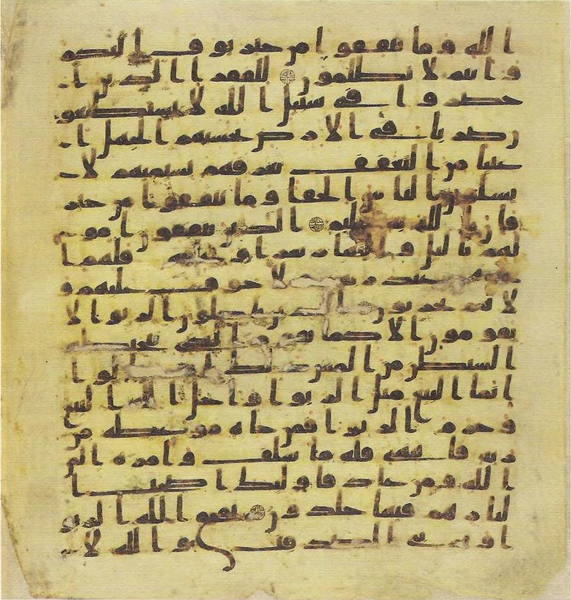 الله وما تنفقوا من خير يوف اليكم
وانتم لا تظلمون للفقرا الذين ا
حصروا في سبيل الله لا يستطيعو
ن ضربا في الارض يحسبهم الجهل ا
غنيا من التعفف تعرفهم بسيمهم لا
يسلون الناس الحافا وما تنفقوا من خير
فان الله به عليم الذين ينفقون امو
لهم باليل والنهار سرا وعلنيه فلهم ا
جرهم عند ربهم ولا خوف عليهم و
لا هم يحزنون الذين ياكلون الربوا لا
يقومون الا كما يقوم الذي يتخبطه
الشيطن من المس ذلك بانهم قالوا
انما البيع مثل الربوا واحل الله البيع
وحرم الربوا فمن جاه موعظه من
ربه فانتهى فله ما سلف وامره الى
الله ومن عاد فاولىك اصحب ا
لنار هم فيها خلدون يمحق الله الربو
ا ويربي الصدقت والله لا